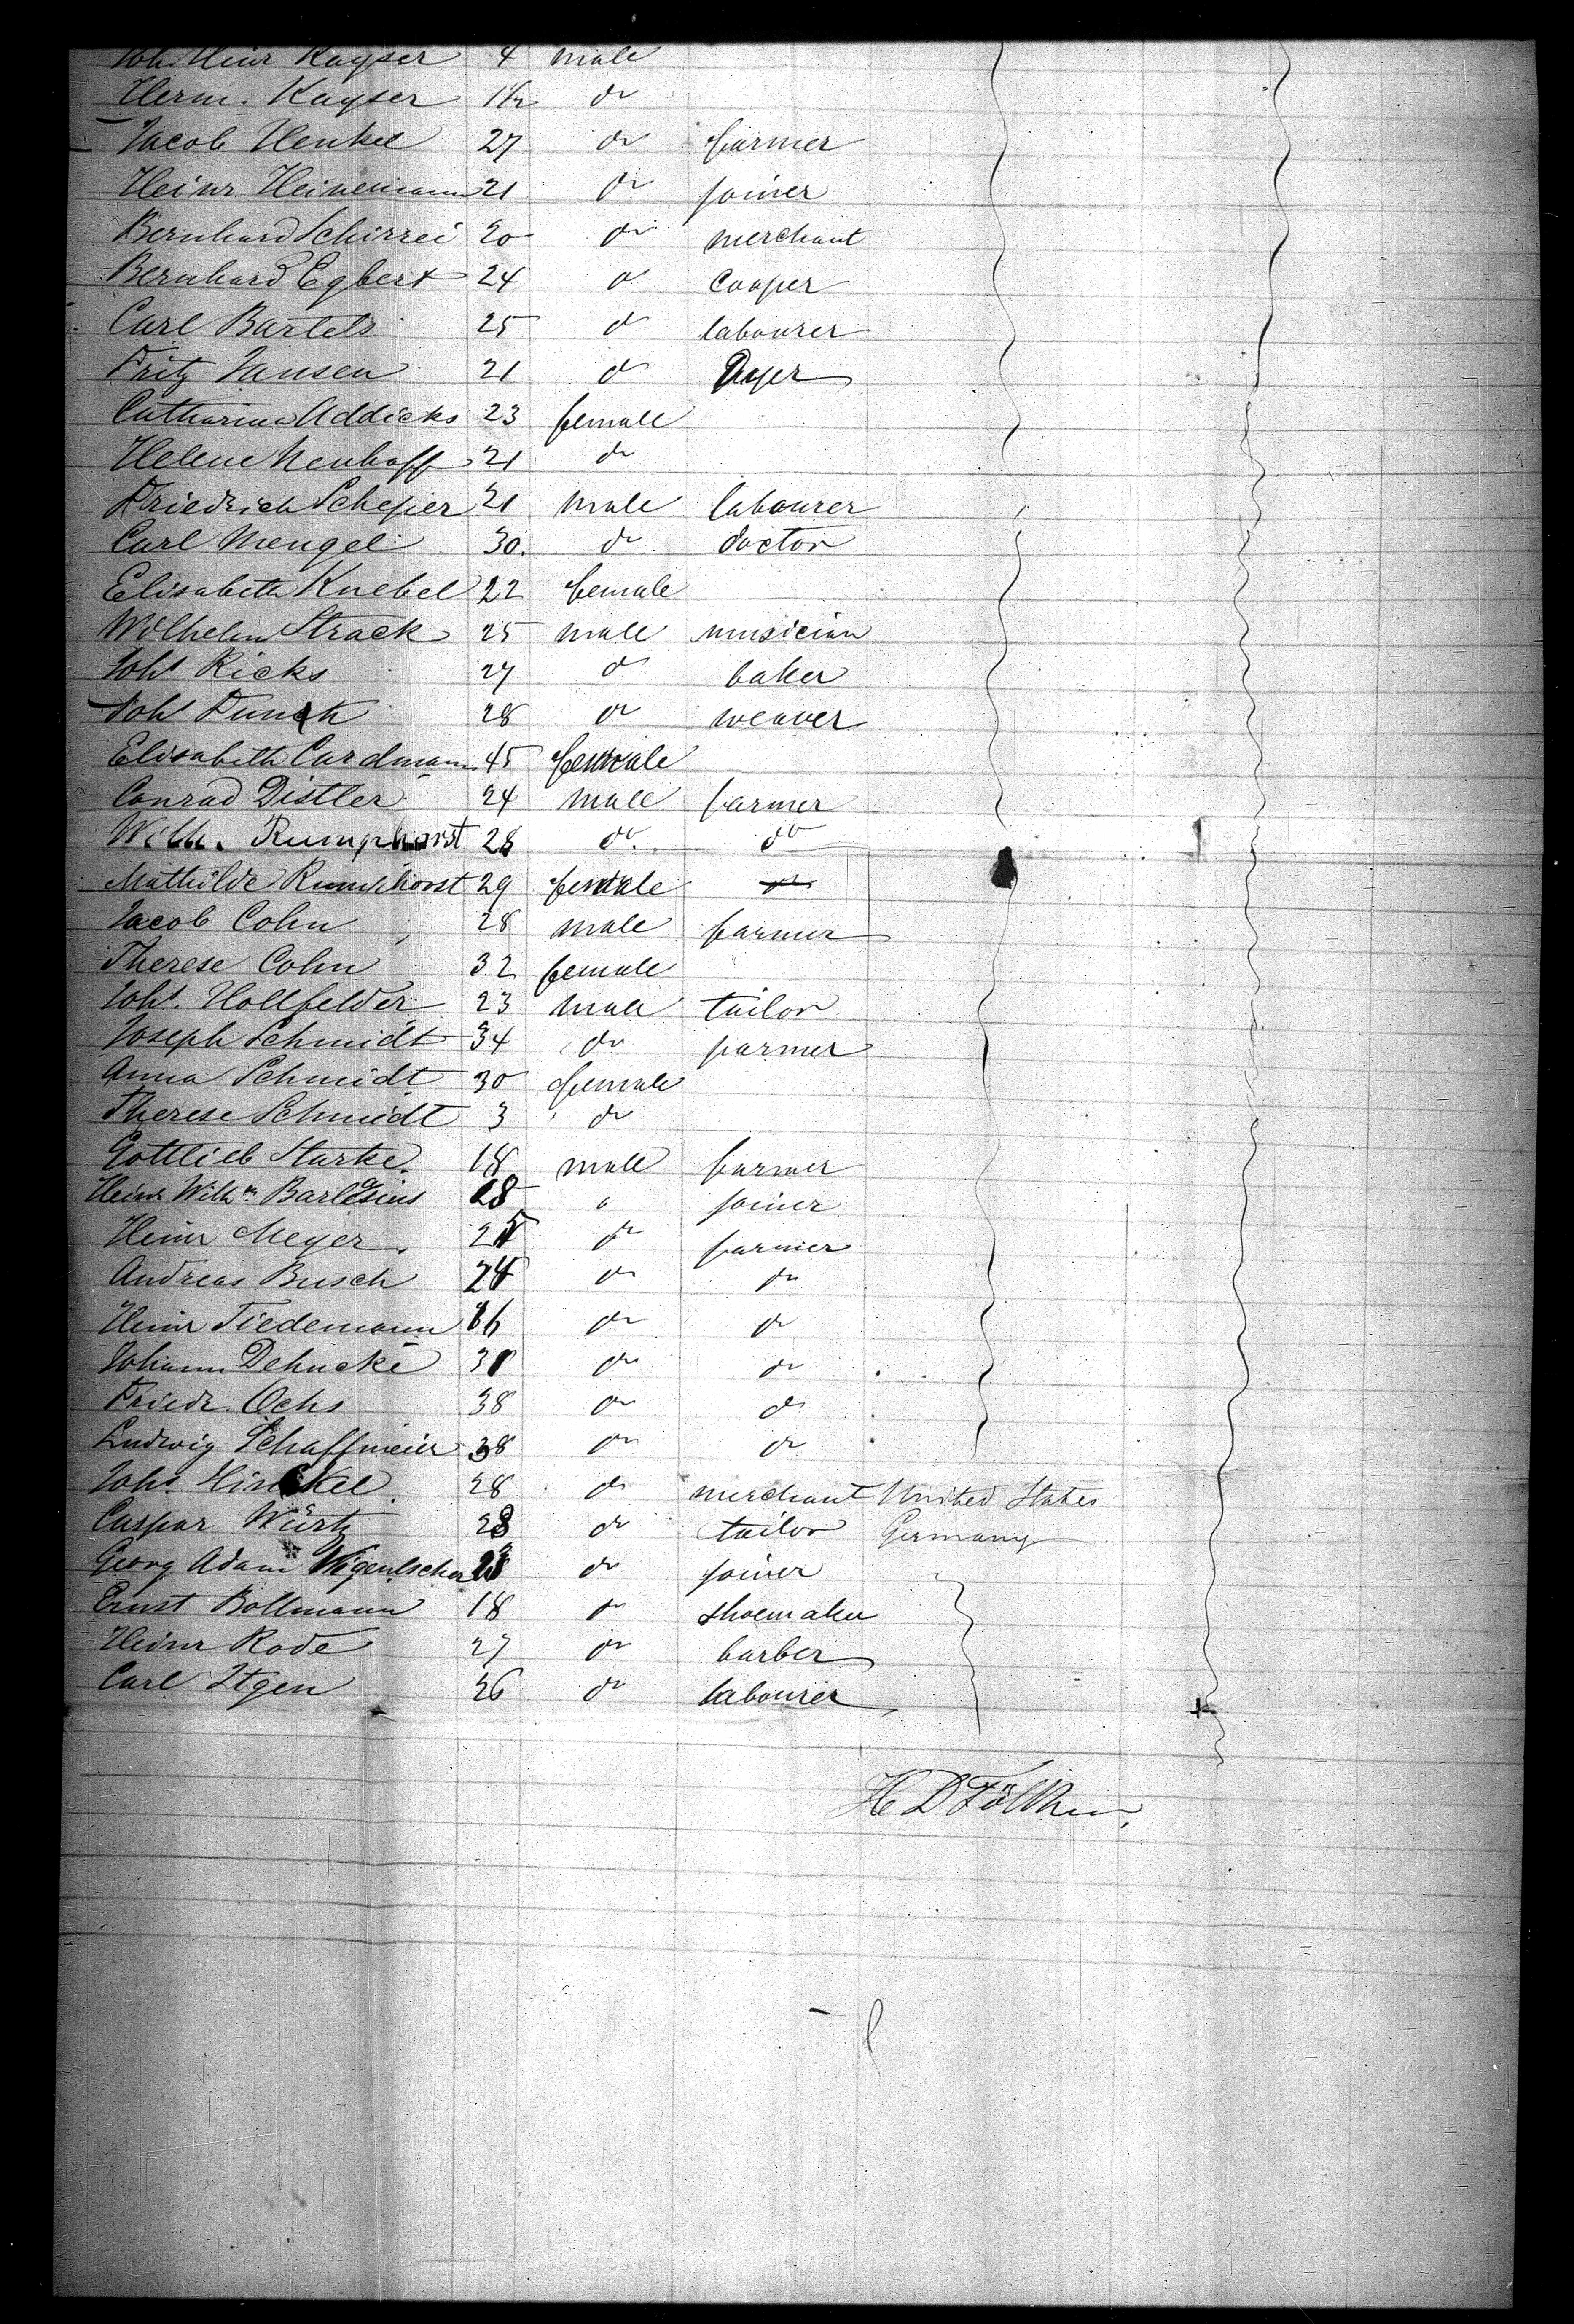 Joh. Heinr Kayser 4 male
Herm. Kayser 1½ do
Jacob Henkel 27 do farmer
Heinr Heinemann 21 do joiner
Bernhard Schirrei 20 do merchant
Bernhard Egbert 24 do cooper
Carl Bartels 25 do labourer
Fritz Jansen 21 do
Catharina Addicks 23 female
Helene Neuhoff 21 do
Friedrich Scheper 21 male labourer
Carl Mengel 30. do doctor
Elisabeth Knebel 22 female
Wilhelm Strack 25 male musician
Joh. Ricks 27 do baker
Joh Funck 28 do weaver
Elisabeth Cardmann 45 female
Conrad Distler 24 male farmer
Wilh. Rumphorst 28 do. do
Mathilde Rumphorst 29 female do
Jacob Cohn 28 male farmer
Therese Cohn 32 female
Joh. Hollfelder 23 male tailor
Joseph Schmidt 34 do farmer
Anna Schmidt 30 female
Therese Schmidt 3 do
Gottlieb Starke. 18 male farmer
Heinr Wilhm Barlesius 28 " joiner
Heinr Meyer 25 do farmer
Andreas Busch 24 do do
Heinr Tiedemann 16 do do
Johann Dehncke 31 do do
Friedr. Ochs 38 do do
Ludwig Schaffmeier 38 do do
Johs. Hinckel 28 do merchant United States
Caspar Würtz 28 do tailor Germany
Georg Adam 23 do joiner
Ernst Bollmann 18 do shoemaker
Heinr Rode 27 do barber
Carl Itgen 26 do labourer
H D